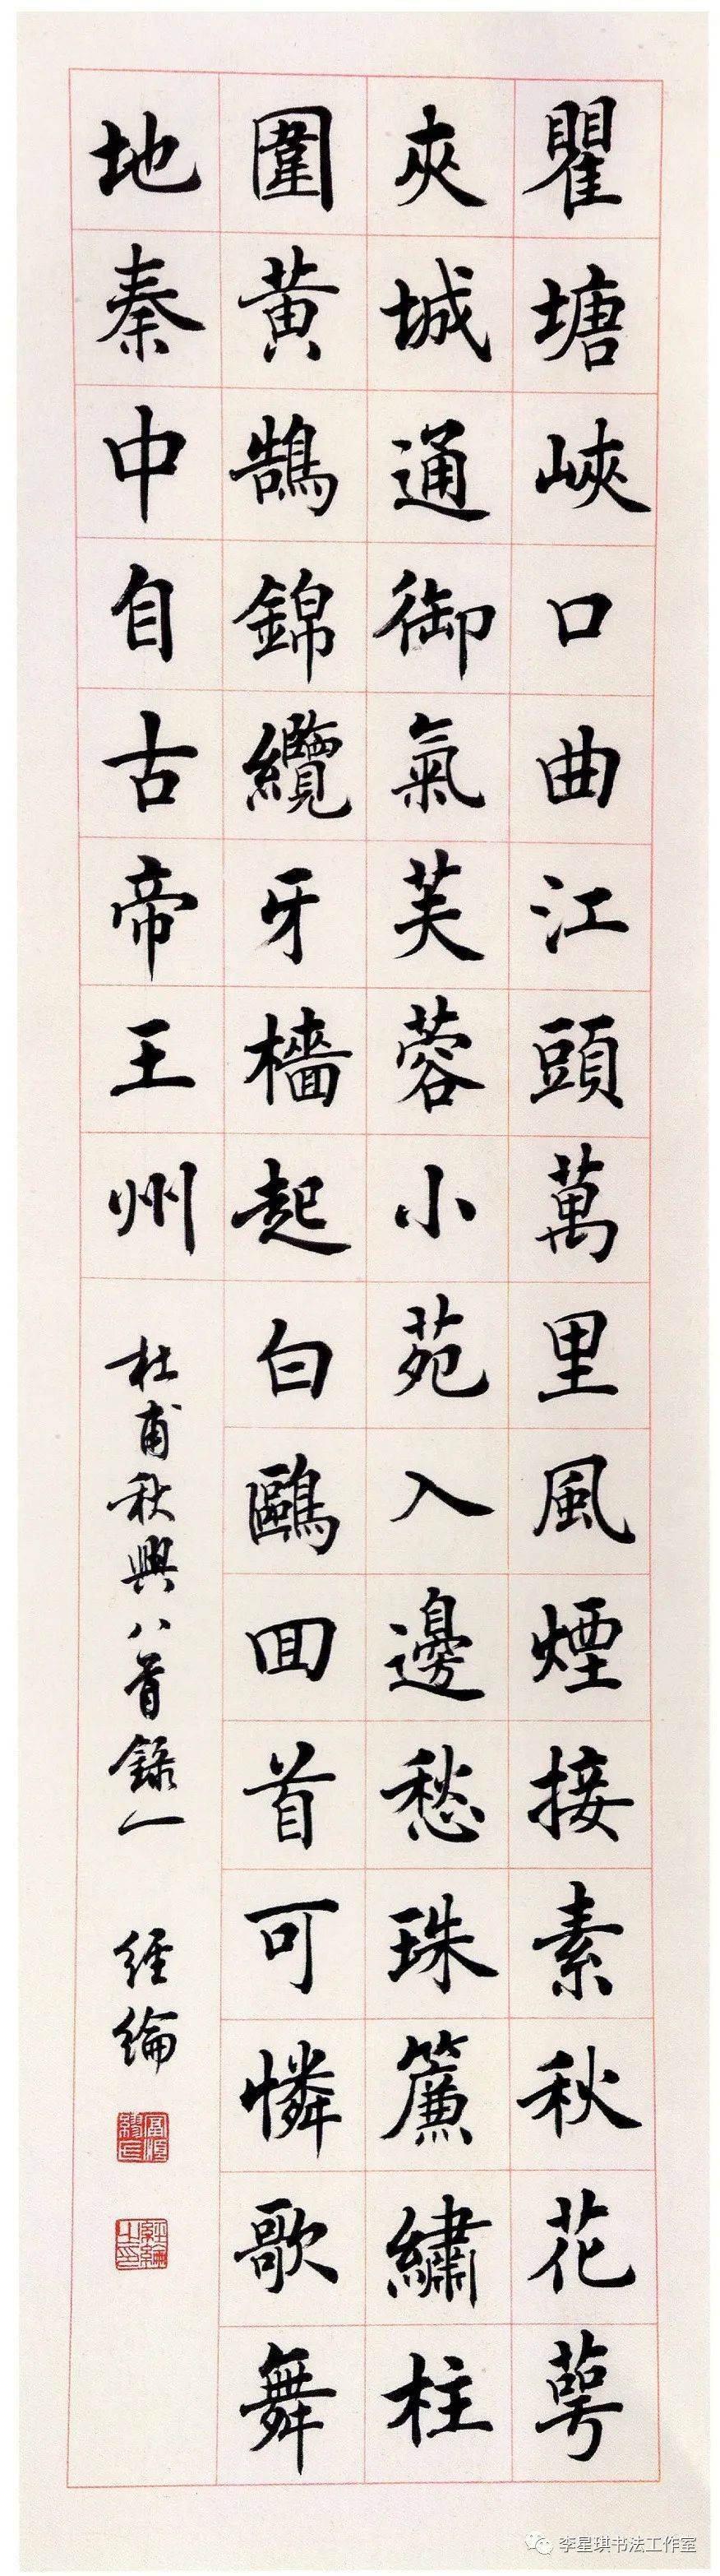 瞿塘峽口曲江頭萬里風煙接素秋花萼
夾城通御氣芙蓉小苑入邊愁珠簾繡柱
圍黃鵠錦纜牙檣起白鷗回首可憐歌舞
地秦中自古帝王州
杜甫秋興八首錄一 經綸
李星琪书法工作室